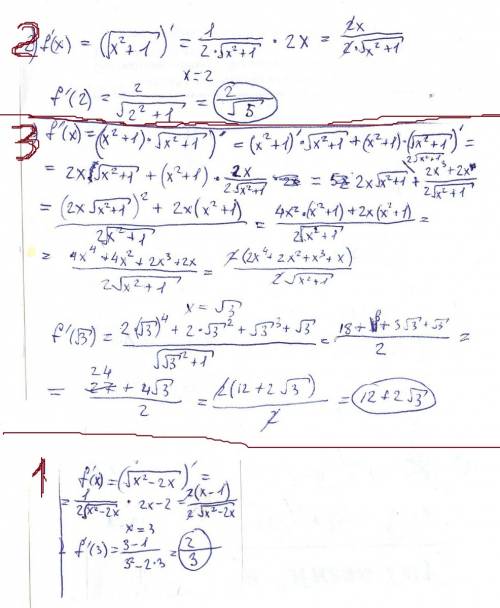 2) f'(x) = (√(x²+1))' = 1/(2·√(x²+1)) · 2x = 2x/(2·√(x²+1))
x=2
f'(2) = 2/√(2²+1) = 2/√5
3 f'(x) = ((x²+1)·√(x²+1))' = (x²+1)'·√(x²+1) + (x²+1)·(√(x²+1))' =
= 2x√(x²+1) + (x²+1)· 2x/(2√(x²+1)) = 2x√(x²+1) + (2x³+2x)/(2√(x²+1))
= ((2x√(x²+1))² + 2x(x²+1))/(2√(x²+1)) = (4x²·(x²+1)+2x(x²+1))/(2√(x²+1)) =
= (4x⁴+4x²+2x³+2x)/(2√(x²+1)) = 2(2x⁴+2x²+x³+x)/(2√(x²+1))
x = √3
f'(√3) = (2(√3)⁴ + 2·√3² + √3³ + √3)/√(√3²+1) = (18+6+3√3+√3)/2 =
= (24 + 4√3)/2 = 2(12+2√3)/2 = 12+2√3
1
f'(x) = (√(x²-2x))' =
= 1/(2√(x²-2x)) · 2x-2 = 2(x-1)/(2√(x²-2x))
x=3
f'(3) = (3-1)/(3²-2·3) = 2/3